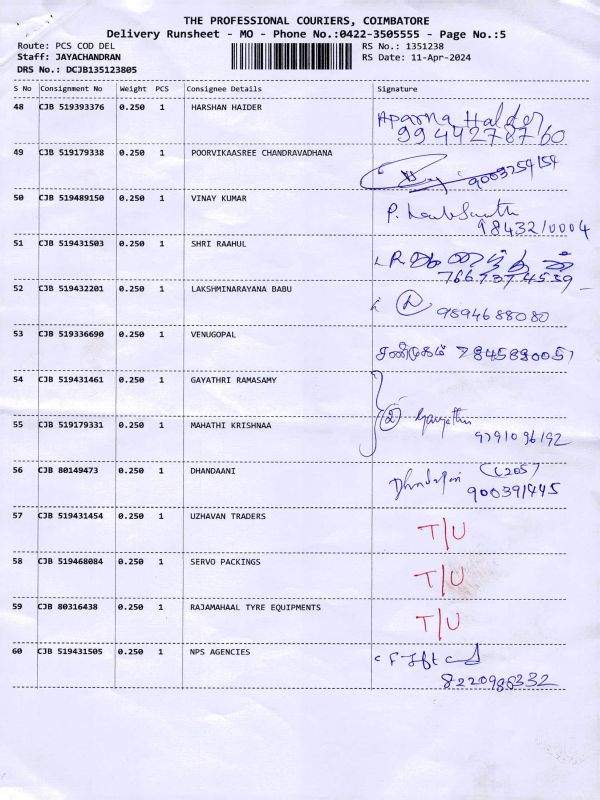 THE PROFESSIONAL COURIERS, COIMBATORE
Delivery Runsheet - MO - Phone No.:0422-3505555 - Page No.:5
Route: PCS COD DEL RS No.: 1351238
Staff: JAYACHANDRAN RS Date: 11-Apr-2024
DRS No.: DCJB135123805
S No Consignment No Weight PCS Consignee Details Signature
48 CJB 519393376 0.250 1 HARSHAN HAIDER Aparna Halder
9944278760
49 CJB 519179338 0.250 1 POORVIKAASREE CHANDRAVADHANA 9003254154
50 CJB 519489150 0.250 1 VINAY KUMAR P.
9843210004
51 CJB 519431503 0.250 1 SHRI RAAHUL
7667374539
52 CJB 519432201 0.250 1 LAKSHMINARAYANA BABU 9894688080
53 CJB 519336690 0.250 1 VENUGOPAL சண்முகம் 7845890051
54 CJB 519431461 0.250 1 GAYATHRI RAMASAMY
55 CJB 519179331 0.250 1 MAHATHI KRISHNAA (2) Gayathri
9791096192
56 CJB 80149473 0.250 1 DHANDAANI Dhandapani
900391445
57 CJB 519431454 0.250 1 UZHAVAN TRADERS T/U
58 CJB 519468084 0.250 1 SERVO PACKINGS T/U
59 CJB 80316438 0.250 1 RAJAMAHAAL TYRE EQUIPMENTS T/U
60 CJB 519431505 0.250 1 NPS AGENCIES
8220986332